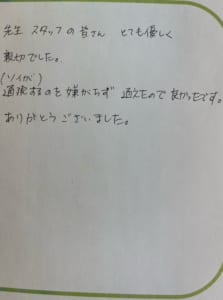 先生 スタッフの皆さん とても優しく
親切でした。
(ソイが)
通院するのを嫌がらず 通えたので良かったです。
ありがとうございました。